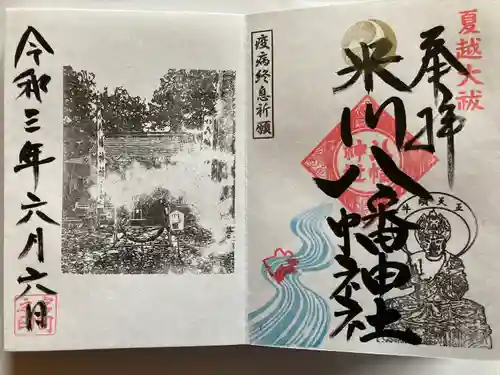 夏越大祓
奉拝
氷川八幡神社
疫病終息祈願
牛頭天王
令和三年六月六日